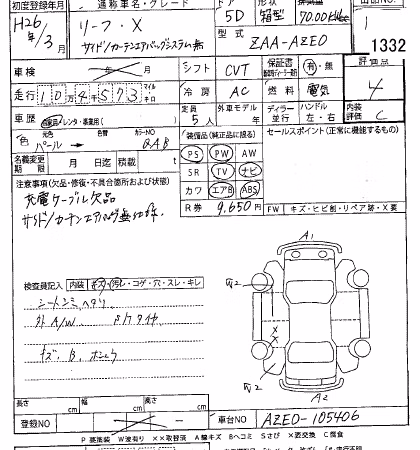 初度登録年月 通称車名・グレード ドア 形状 排気量 出品番号
H26年/3月 リーフ・X 5D 箱型 70.00kw 1
サイド/カーテンエアバッグシステム無 型式 ZAA-AZE0 1332
車検 年 月 シフト CVT 保証書 有・無 評価点
走行 10万4千573 マイル キロ 冷房 AC 燃料 電気 4
車歴 自家用/レンタ・事業用( ) 定員 5人 外車モデル年 ディーラー 並行 ハンドル 左・右 内装評価 C
色 元色 パール→ 色替 カラーNO QAB 装備品(純正品に限る) セールスポイント(正常に機能するもの)
名義変更期限 月 日迄 積載( )t PS PW AW
注意事項(欠品・修復・不具合箇所および状態) SR TV ナビ
充電ケーブル欠品 カワ エアB ABS
サイド/カーテンエアバッグ無 R券 9,650円 FW キズ・ヒビ割・リペア跡・X要
検査員記入 内装 キズ・汚れ・コゲ・穴・スレ・キレ
シートシミヘタリ
外A/W
キズ、B、
A1
W2
W2
A2
長さ cm 幅 cm 高さ cm
登録NO 車台NO AZE0-105406
P 要塗装 W波有り ××取替済 A線キズ Bヘコミ Sさび ×要交換 C腐食